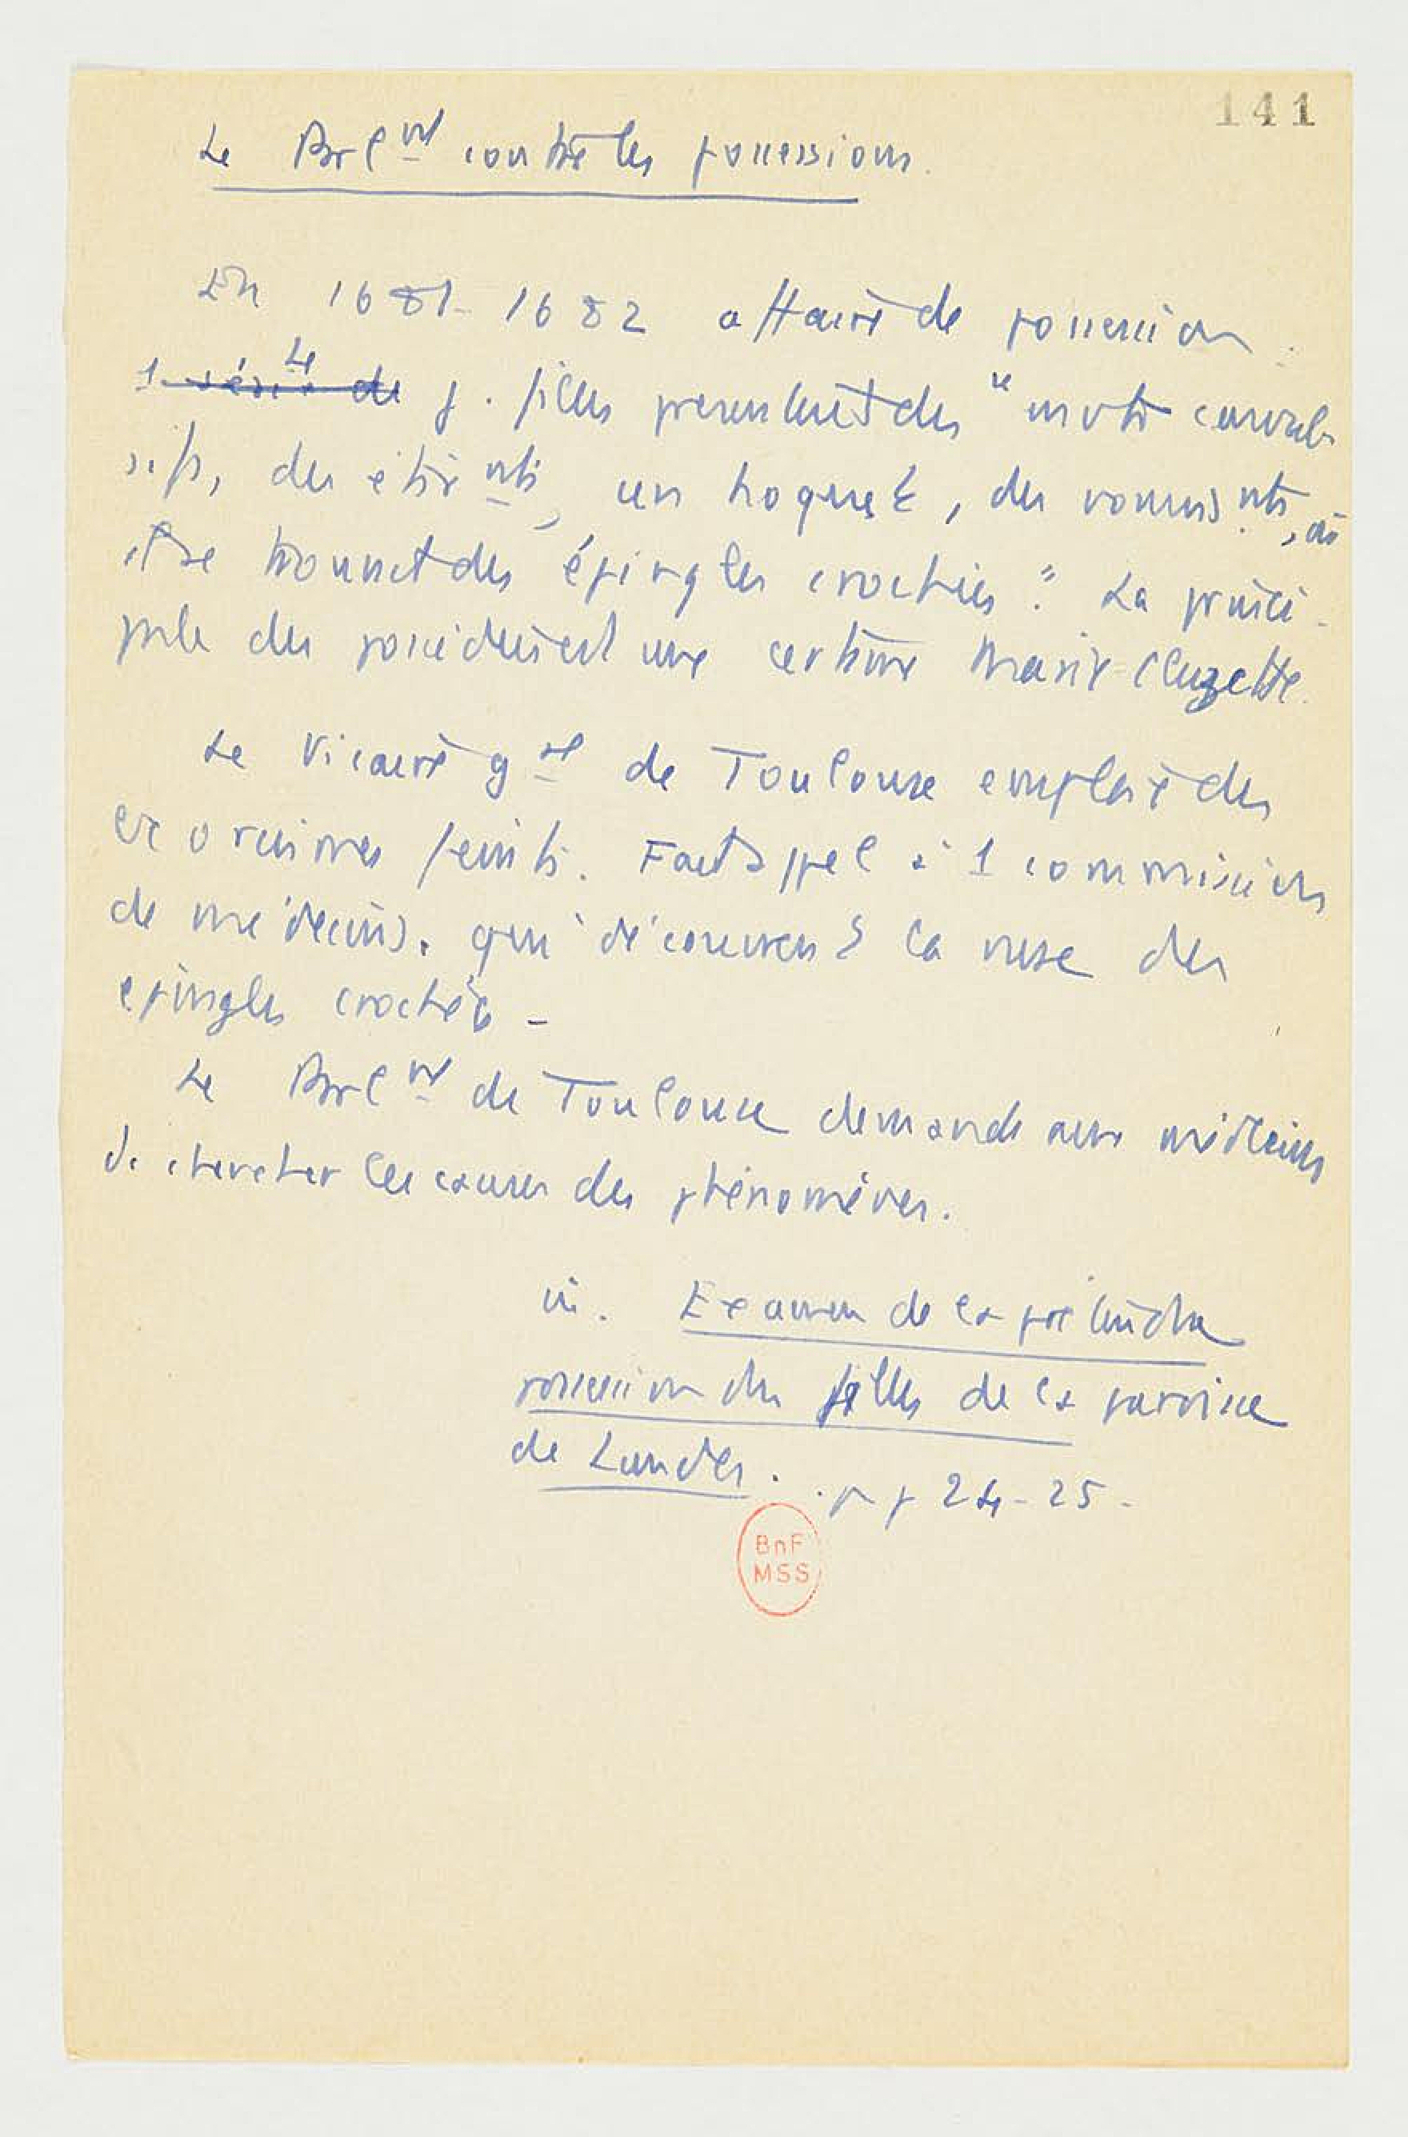 141
Le Parlnt contre les possessions.
En 1681-1682 affaire de possession.
1 série de 4 j. filles presentent des "mvts convul-
sifs, des étirnts, un hoquet, des vomissnts, où
il se trouvait des épingles crochées". La princi-
pale des possédées est une certaine Marie Cluzette.
Le Vicaire gal de Toulouse emploie des
exorcismes feints. Fait appel à 1 commission
de médecins. qui découvrent la ruse des
epingles crochées -
Le Parlnt de Toulouse demande aux médecins
de chercher les causes des phénomènes.
in. Examen de la prétendue
possession des filles de la paroisse
de Landes. pp 24-25.
BnF
MSS